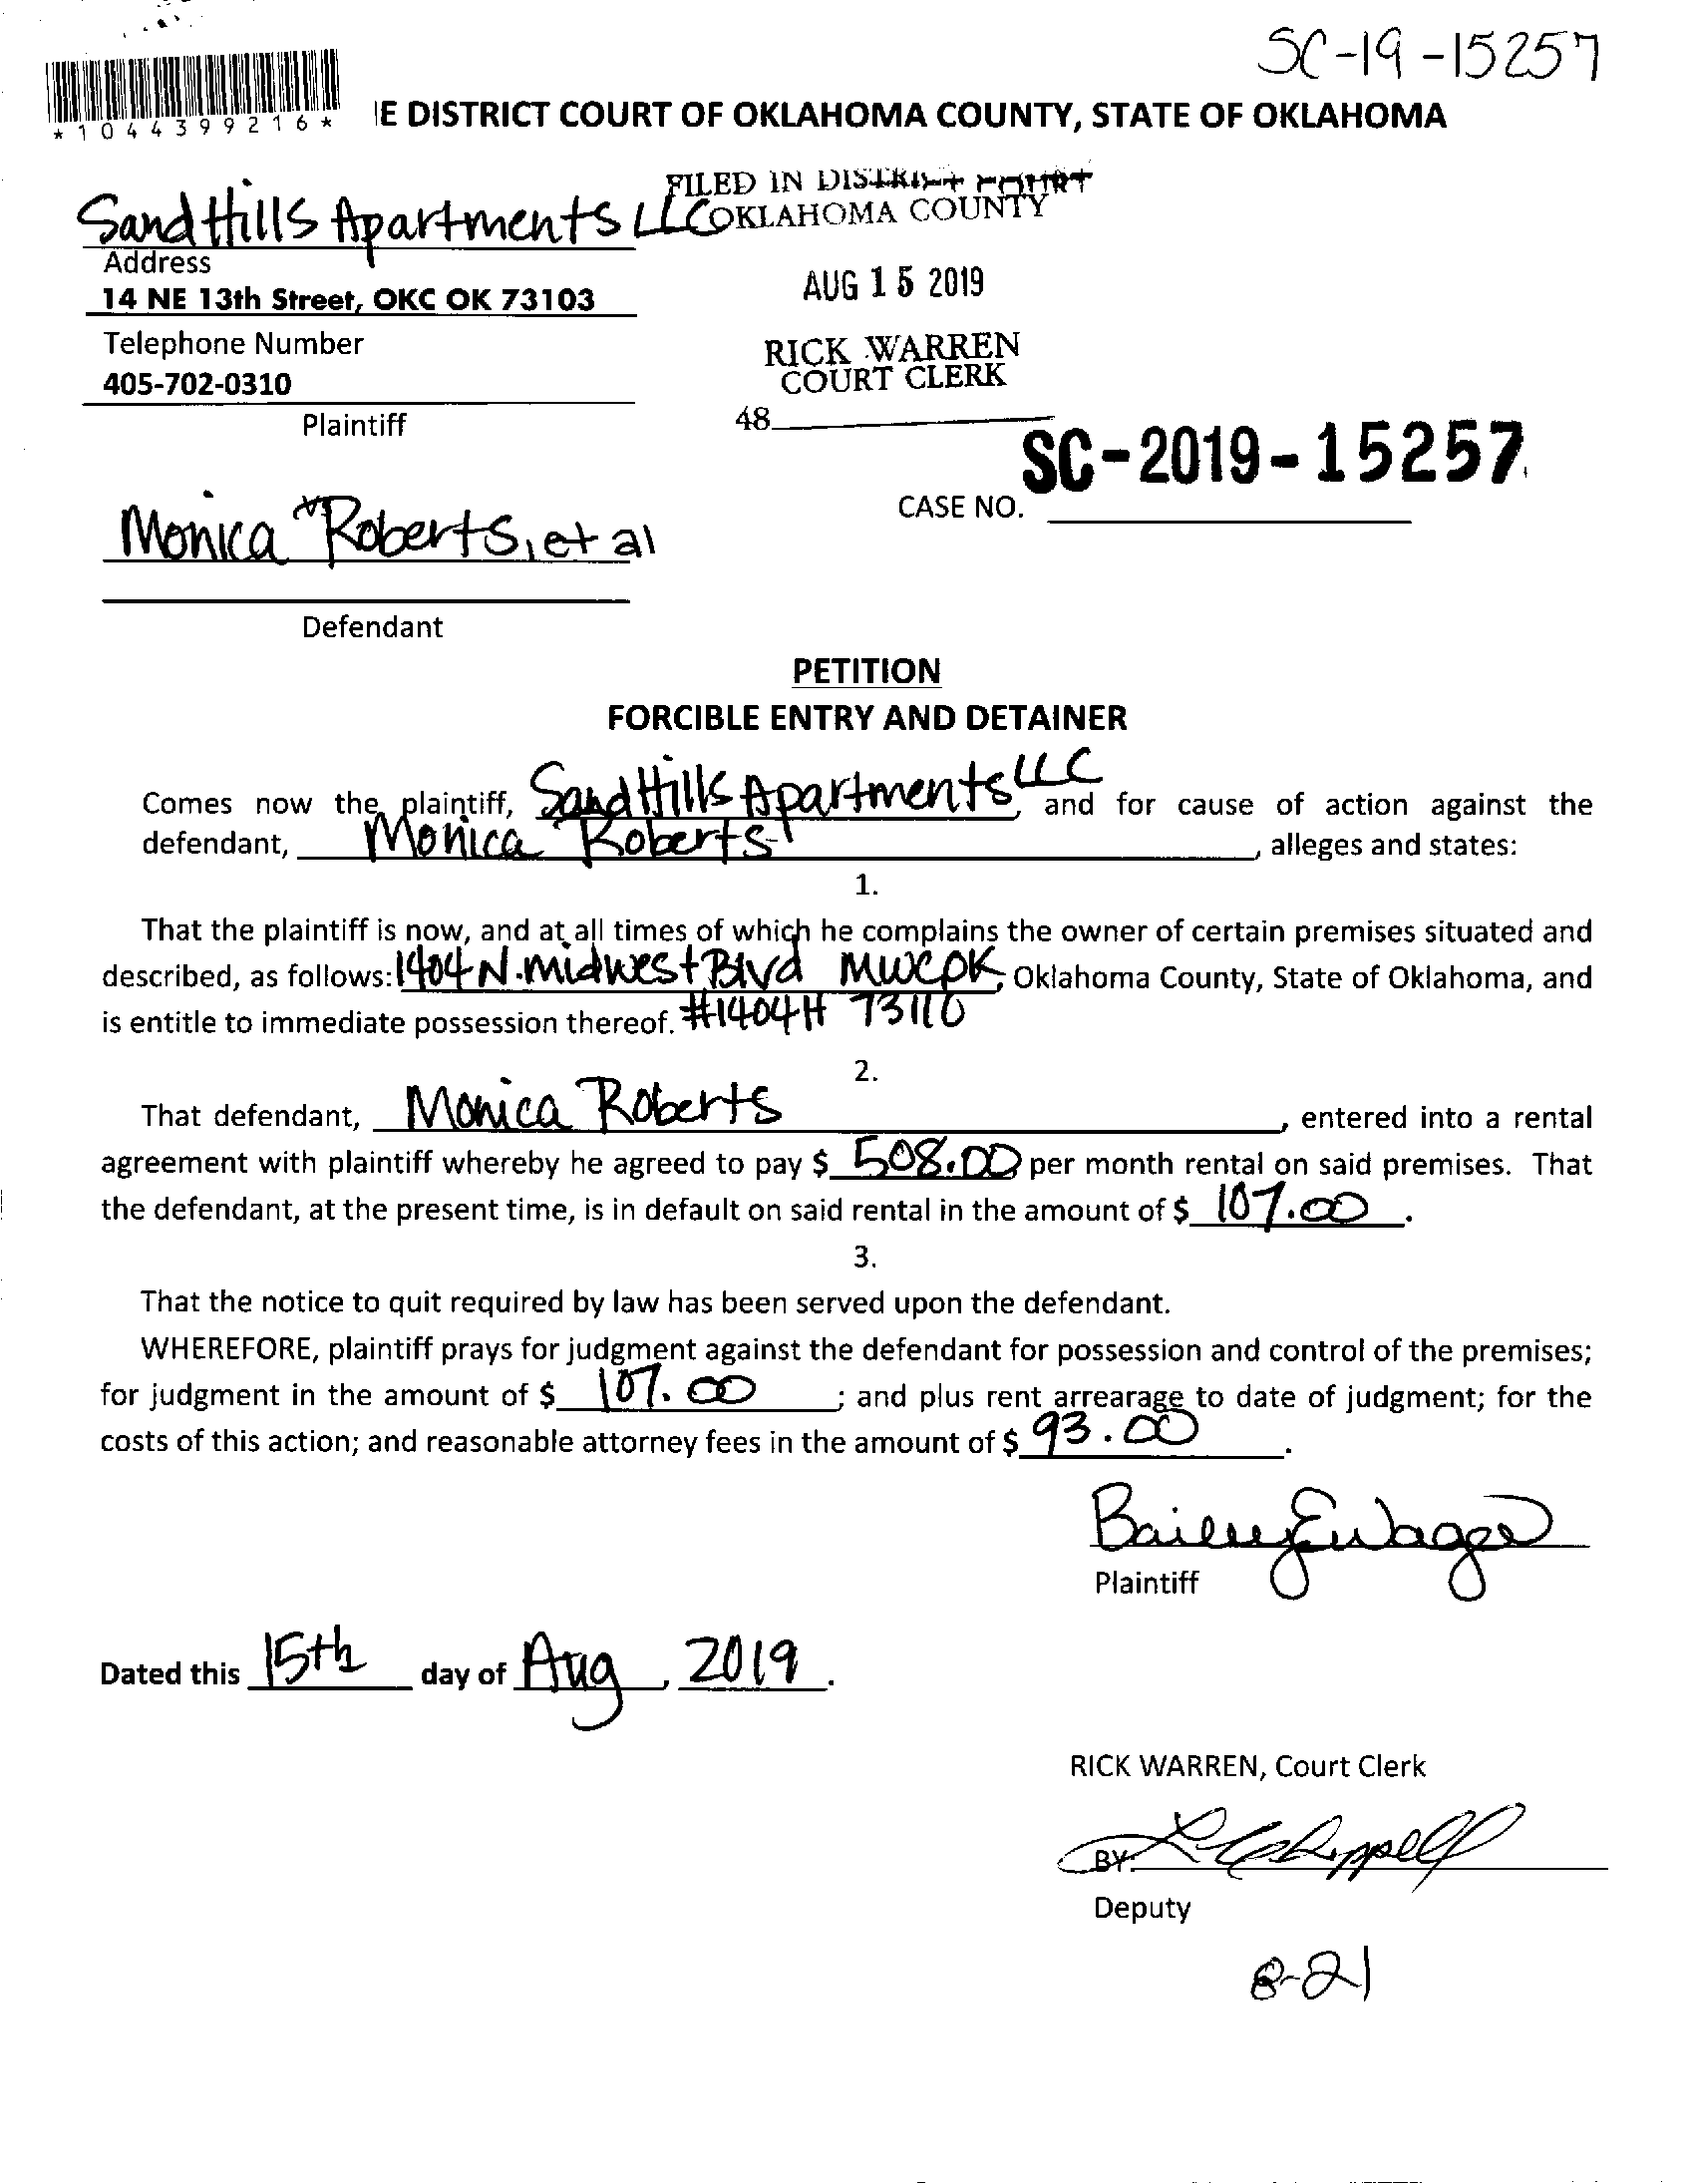 SC-19-15257
*1044399216*
IE DISTRICT COURT OF OKLAHOMA COUNTY, STATE OF OKLAHOMA
FILED IN DISTRICT COURT
OKLAHOMA COUNTY
Sand Hills Apartments LLC
Address
14 NE 13th Street, OKC OK 73103
AUG 15 2019
Telephone Number
405-702-0310
RICK WARREN
COURT CLERK
Plaintiff
48
SC-2019-15257
CASE NO.
vs
Monica Roberts, et al
Defendant
PETITION
FORCIBLE ENTRY AND DETAINER
Comes now the plaintiff, Sand Hills Apartments LLC, and for cause of action against the
defendant, Monica Roberts, alleges and states:
1.
That the plaintiff is now, and at all times of which he complains the owner of certain premises situated and
described, as follows: 1404 N. midwest Blvd MWC OK, Oklahoma County, State of Oklahoma, and
is entitle to immediate possession thereof. #1404H 73110
2.
That defendant, Monica Roberts, entered into a rental
agreement with plaintiff whereby he agreed to pay $ 508.00 per month rental on said premises. That
the defendant, at the present time, is in default on said rental in the amount of $ 107.00.
3.
That the notice to quit required by law has been served upon the defendant.
WHEREFORE, plaintiff prays for judgment against the defendant for possession and control of the premises;
for judgment in the amount of $ 107.00; and plus rent arrearage to date of judgment; for the
costs of this action; and reasonable attorney fees in the amount of $ 93.00.
Plaintiff
Dated this 15th day of Aug, 2019.
RICK WARREN, Court Clerk
BY:
Deputy
8-21